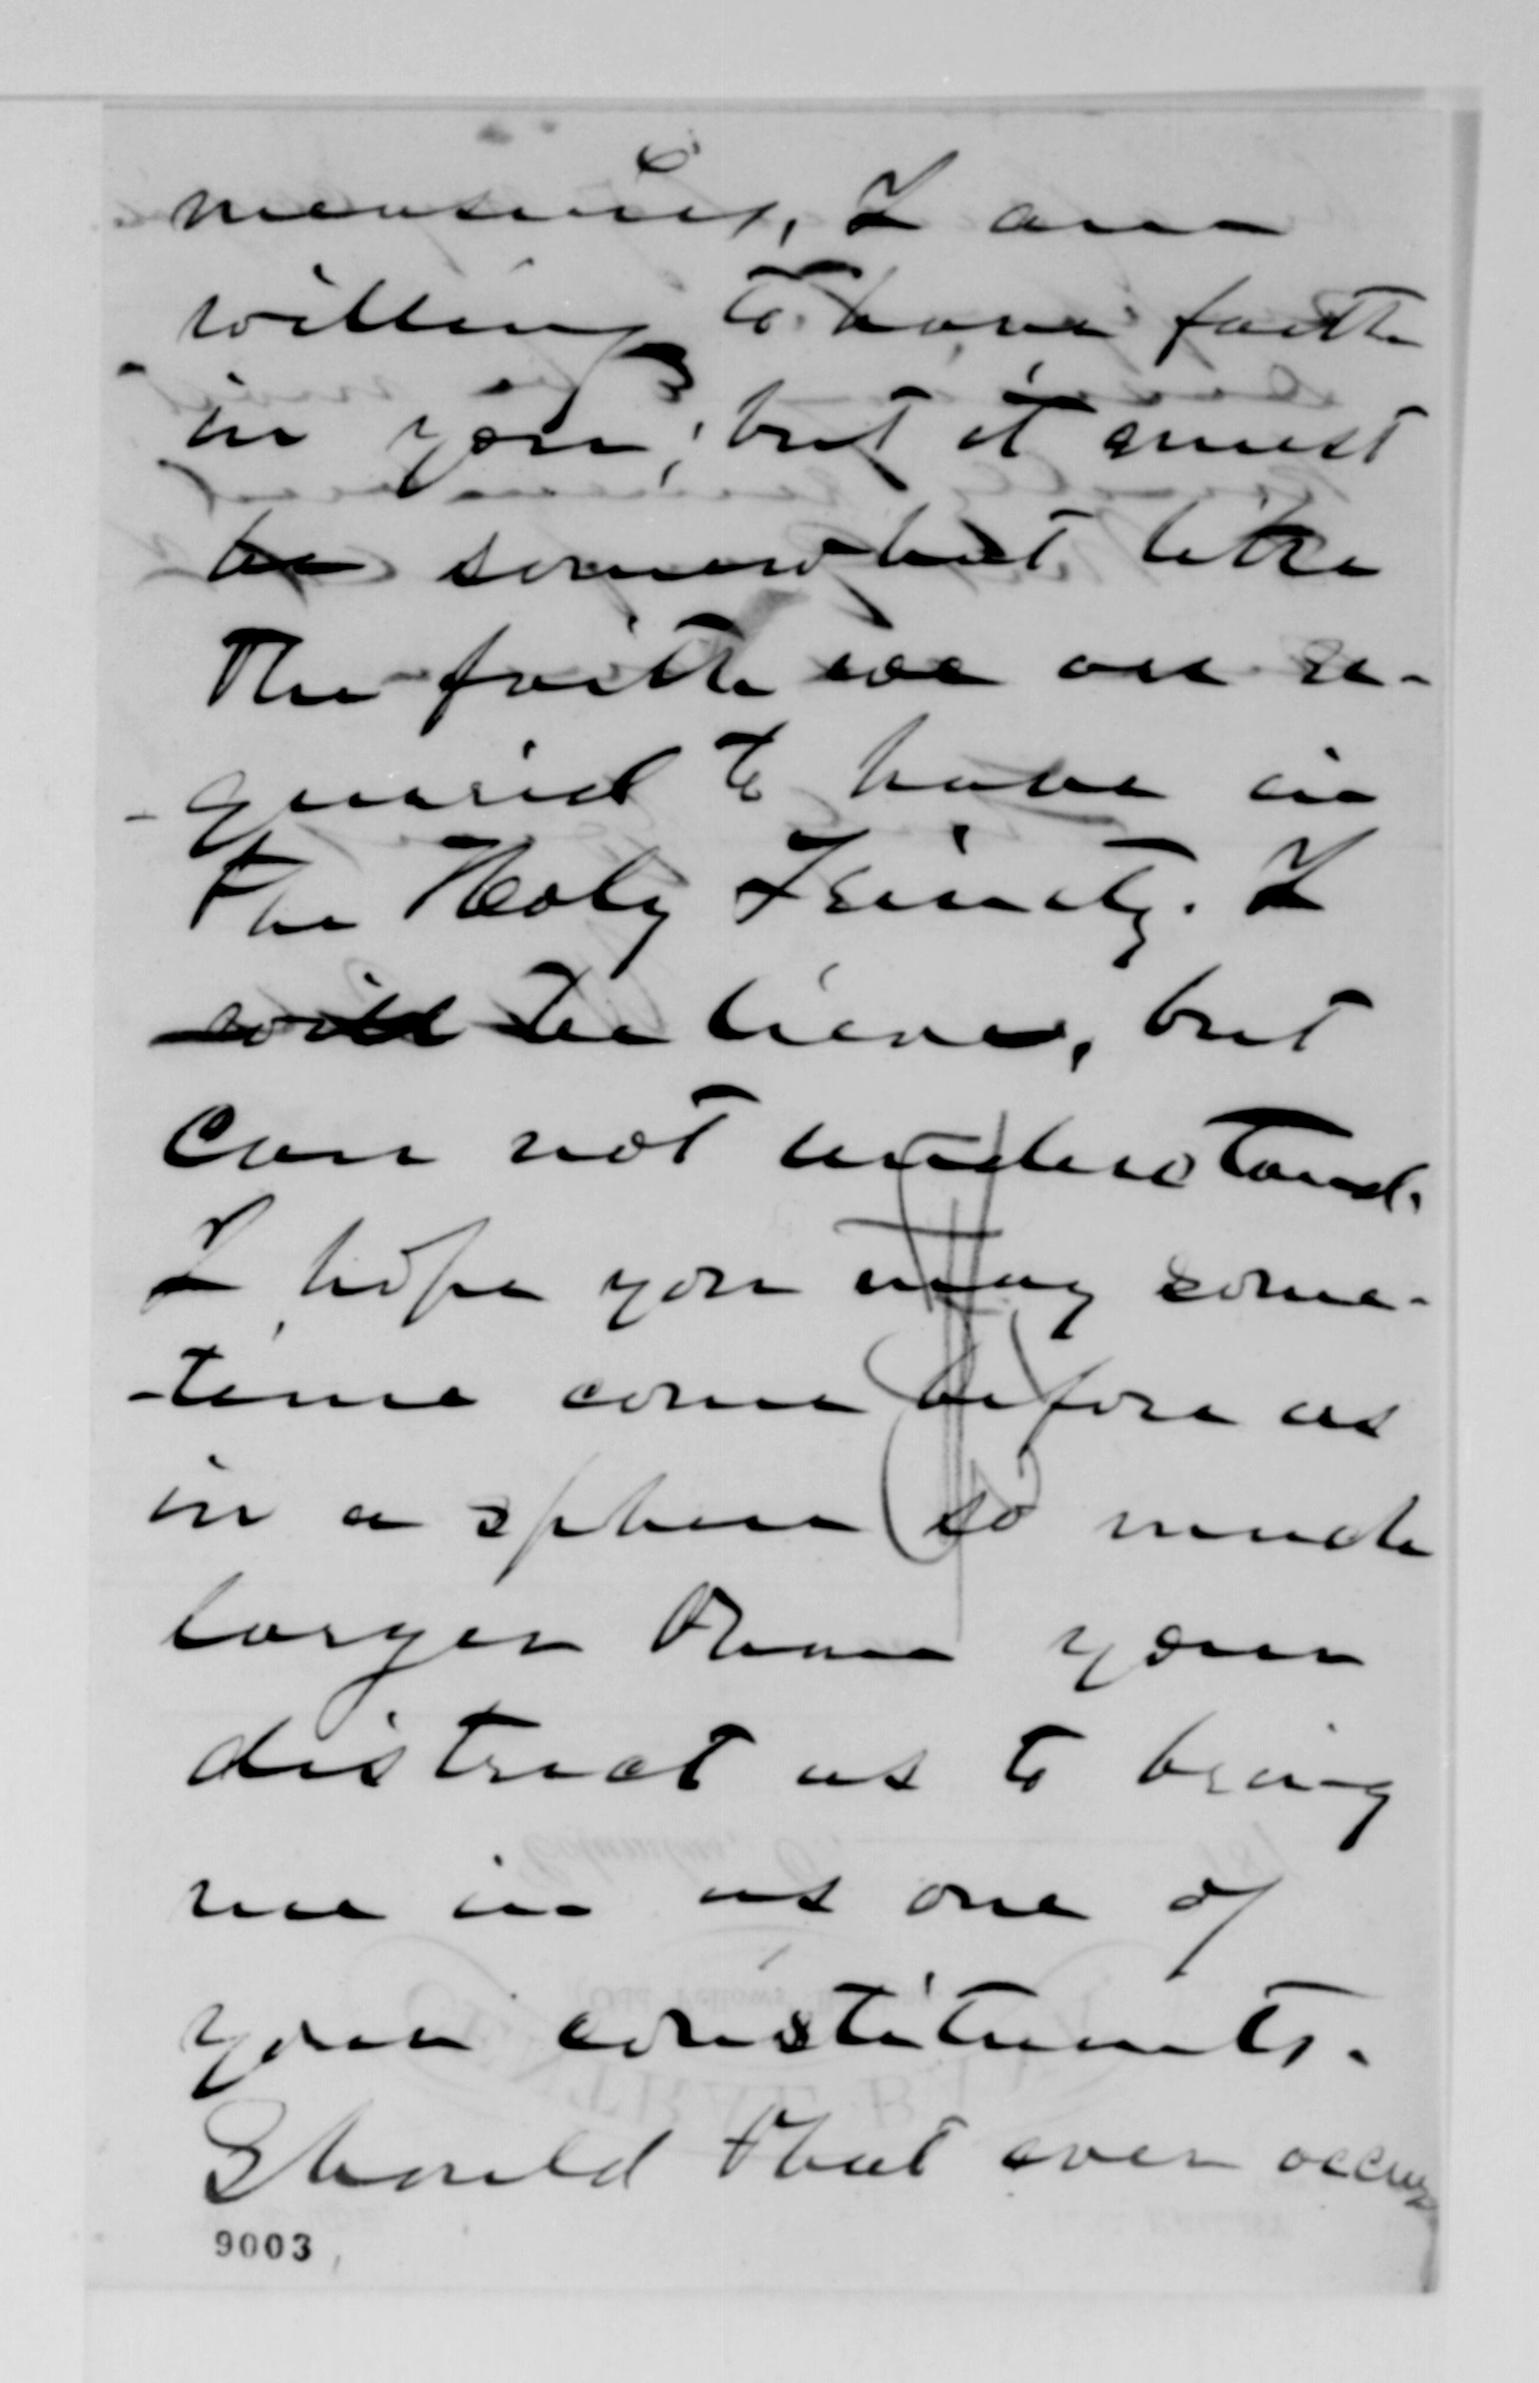 measures, I am
willing to have faith
in you; but it must
be somewhat like
the faith we are re-
quired to have in
the Holy Trinity. I
will believe, but
can not understand.
I hope you may some-
-time come before us
in a sphere so much
larger than your
district as to bring
me in as one of
your constituents.
Should that ever occur
9003